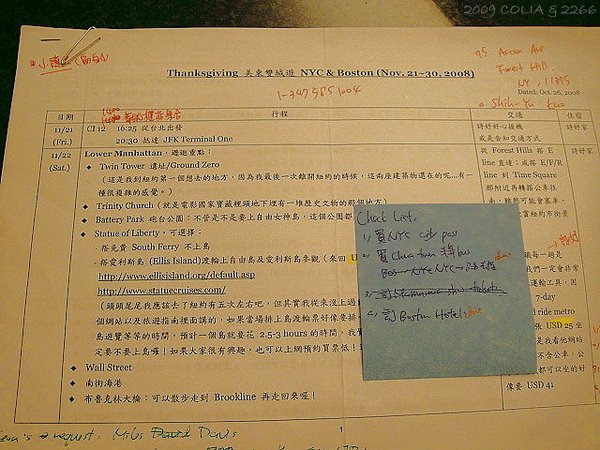 2009 COLIA § 2266
75 Ascan Ave
Forest Hill
NY, 11375
Thanksgiving 美東雙城遊 NYC & Boston (Nov. 21~30, 2008)
1-347 585 1004
Dated: Oct. 26, 2008
Shih-Yu Kuo
日期 行程 交通 住宿
11/21 CI 12 16:25 從台北出發 詩妤好心接機 詩妤家
(Fri.) 20:30 抵達 JFK Terminal One 或是告知交通方式
11/22 Lower Manhattan，遊逛重點： 從 Forest Hills 搭 E 詩妤家
(Sat.) ◆ Twin Tower 遺址/Ground Zero line 直達；或搭 E/F/R
(這是我到紐約第一個想去的地方，因為我最後一次離開紐約的時候，這兩座建築物還在的呢...有 線到 Time Square
一種很複雜的感覺。) 那附近再轉搭公車往
◆ Trinity Church (就是電影國家寶藏裡頭地下埋有一堆歷史文物的那個地方)
◆ Battery Park 砲台公園：不管是不是要上自由女神島，這個公園都
◆ Statue of Liberty，可選擇：
- 搭免費 South Ferry 不上島
- 搭愛利斯島 (Ellis Island) 渡輪上自由島及愛利斯島參觀 (來回 U
http://www.ellisisland.org/default.asp
http://www.statuecruises.com/
(頭頭尾尾我應該去了紐約有五次左右吧，但其實我從來沒上過
個網站以及旅遊指南裡面講的，如果當場排上島渡輪票好像要排
島遊覽等等的時間，預計一個島就要花 2.5-3 hours 的時間
定要不要上島囉！如果大家很有興趣，也可以上網預約買票低！
◆ Wall Street
◆ 南街海港
◆ 布魯克林大橋：可以散步走到 Brookline 再走回來喔！
我們一定會非常
運輸工具，因
7-day
ride metro
USD 25 全
是我看地網站
不含公車，公
都可以坐的好
像要 USD 41
Check List:
1) 買 NYC city pass
2) 買 China town bus
NYC
4) 訂 Boston Hotel
request: Miles Davis
1